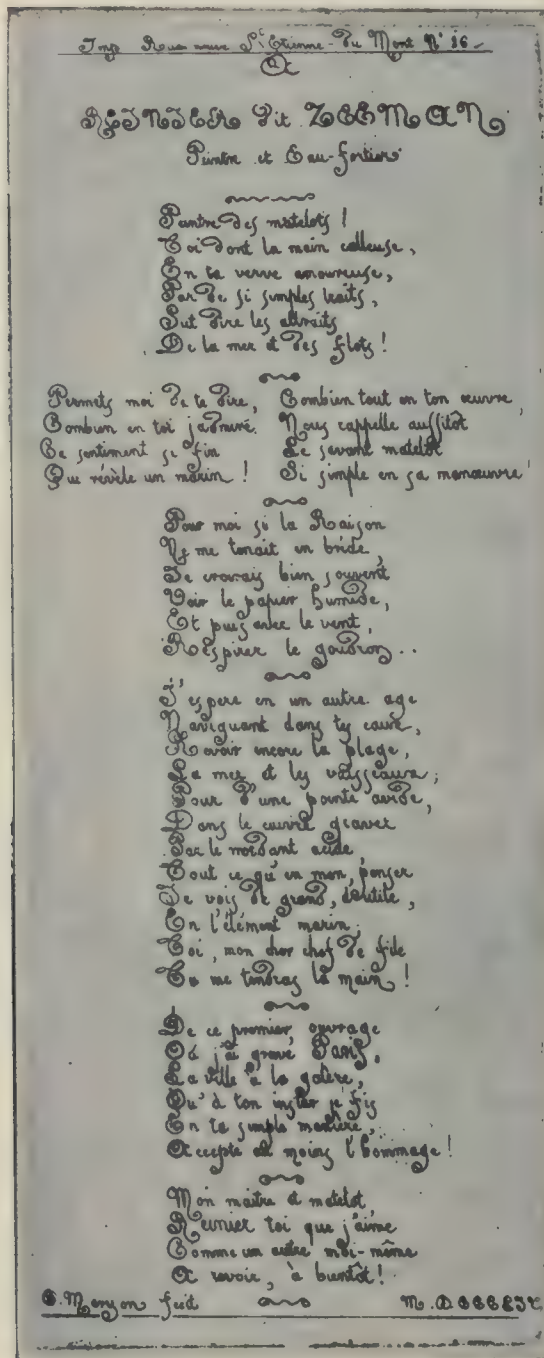 Imp Rue neuve St Etienne-du Mont N° 26
A
REINIER dit ZEEMAN
Peintre et Eau-fortier
Peintre des matelots !
Toi dont la main calleuse,
En ta verve amoureuse,
Par de si simples traits,
Sut dire les attraits
De la mer et des flots !
Permets moi de te dire,
Combien en toi j'admire.
Ce sentiment si fin
Qui révèle un marin !
Combien tout en ton œuvre,
Nous rappelle aussitôt
Le savant matelot
Si simple en sa manœuvre !
Pour moi si la Raison
Ne me tenait en bride,
Je croirais bien souvent
Voir le papier humide,
Et puis avec le vent,
Respirer le goudron..
J'espere en un autre age
Naviguant dans tes eaux,
Revoir encore la plage,
La mer et les vaisseaux;
Pour d'une pointe avide,
Dans le cuivre graver
Par le mordant acide,
Tout ce qu'en mon penser
Je vois de grand, d'utile,
En l'élément marin;
Toi, mon cher chef de file
Tu me tendras la main !
De ce premier ouvrage
Où j'ai gravé Paris,
La ville à la galère,
Qu'à ton instar je fis
En ta simple manière,
Accepte au moins l'hommage !
Mon maitre et matelot,
Reinier toi que j'aime
Comme un autre moi-même
A revoir, à bientôt !
C. Meryon fecit M.D